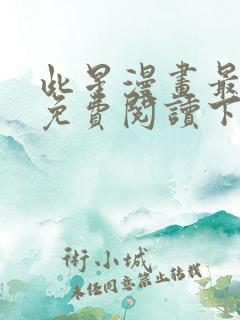 此星漫畫最
免費閱讀下
術小城
未经同意禁止转载